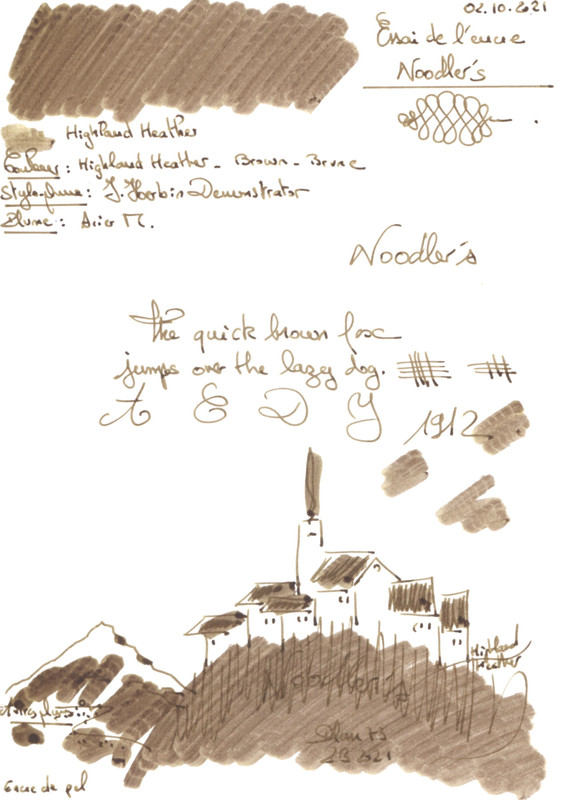 02.10.2021
Essai de l'encre
Noodler's
Highland Heather
Couleur : Highland Heather - Brown - Brune
Stylo-plume : J. Herbin Demonstrator
Plume : Acier M.
Noodler's
the quick brown fox
jumps over the lazy dog.
A E D Y 1912
Highland
Heather
Noodler's
2021